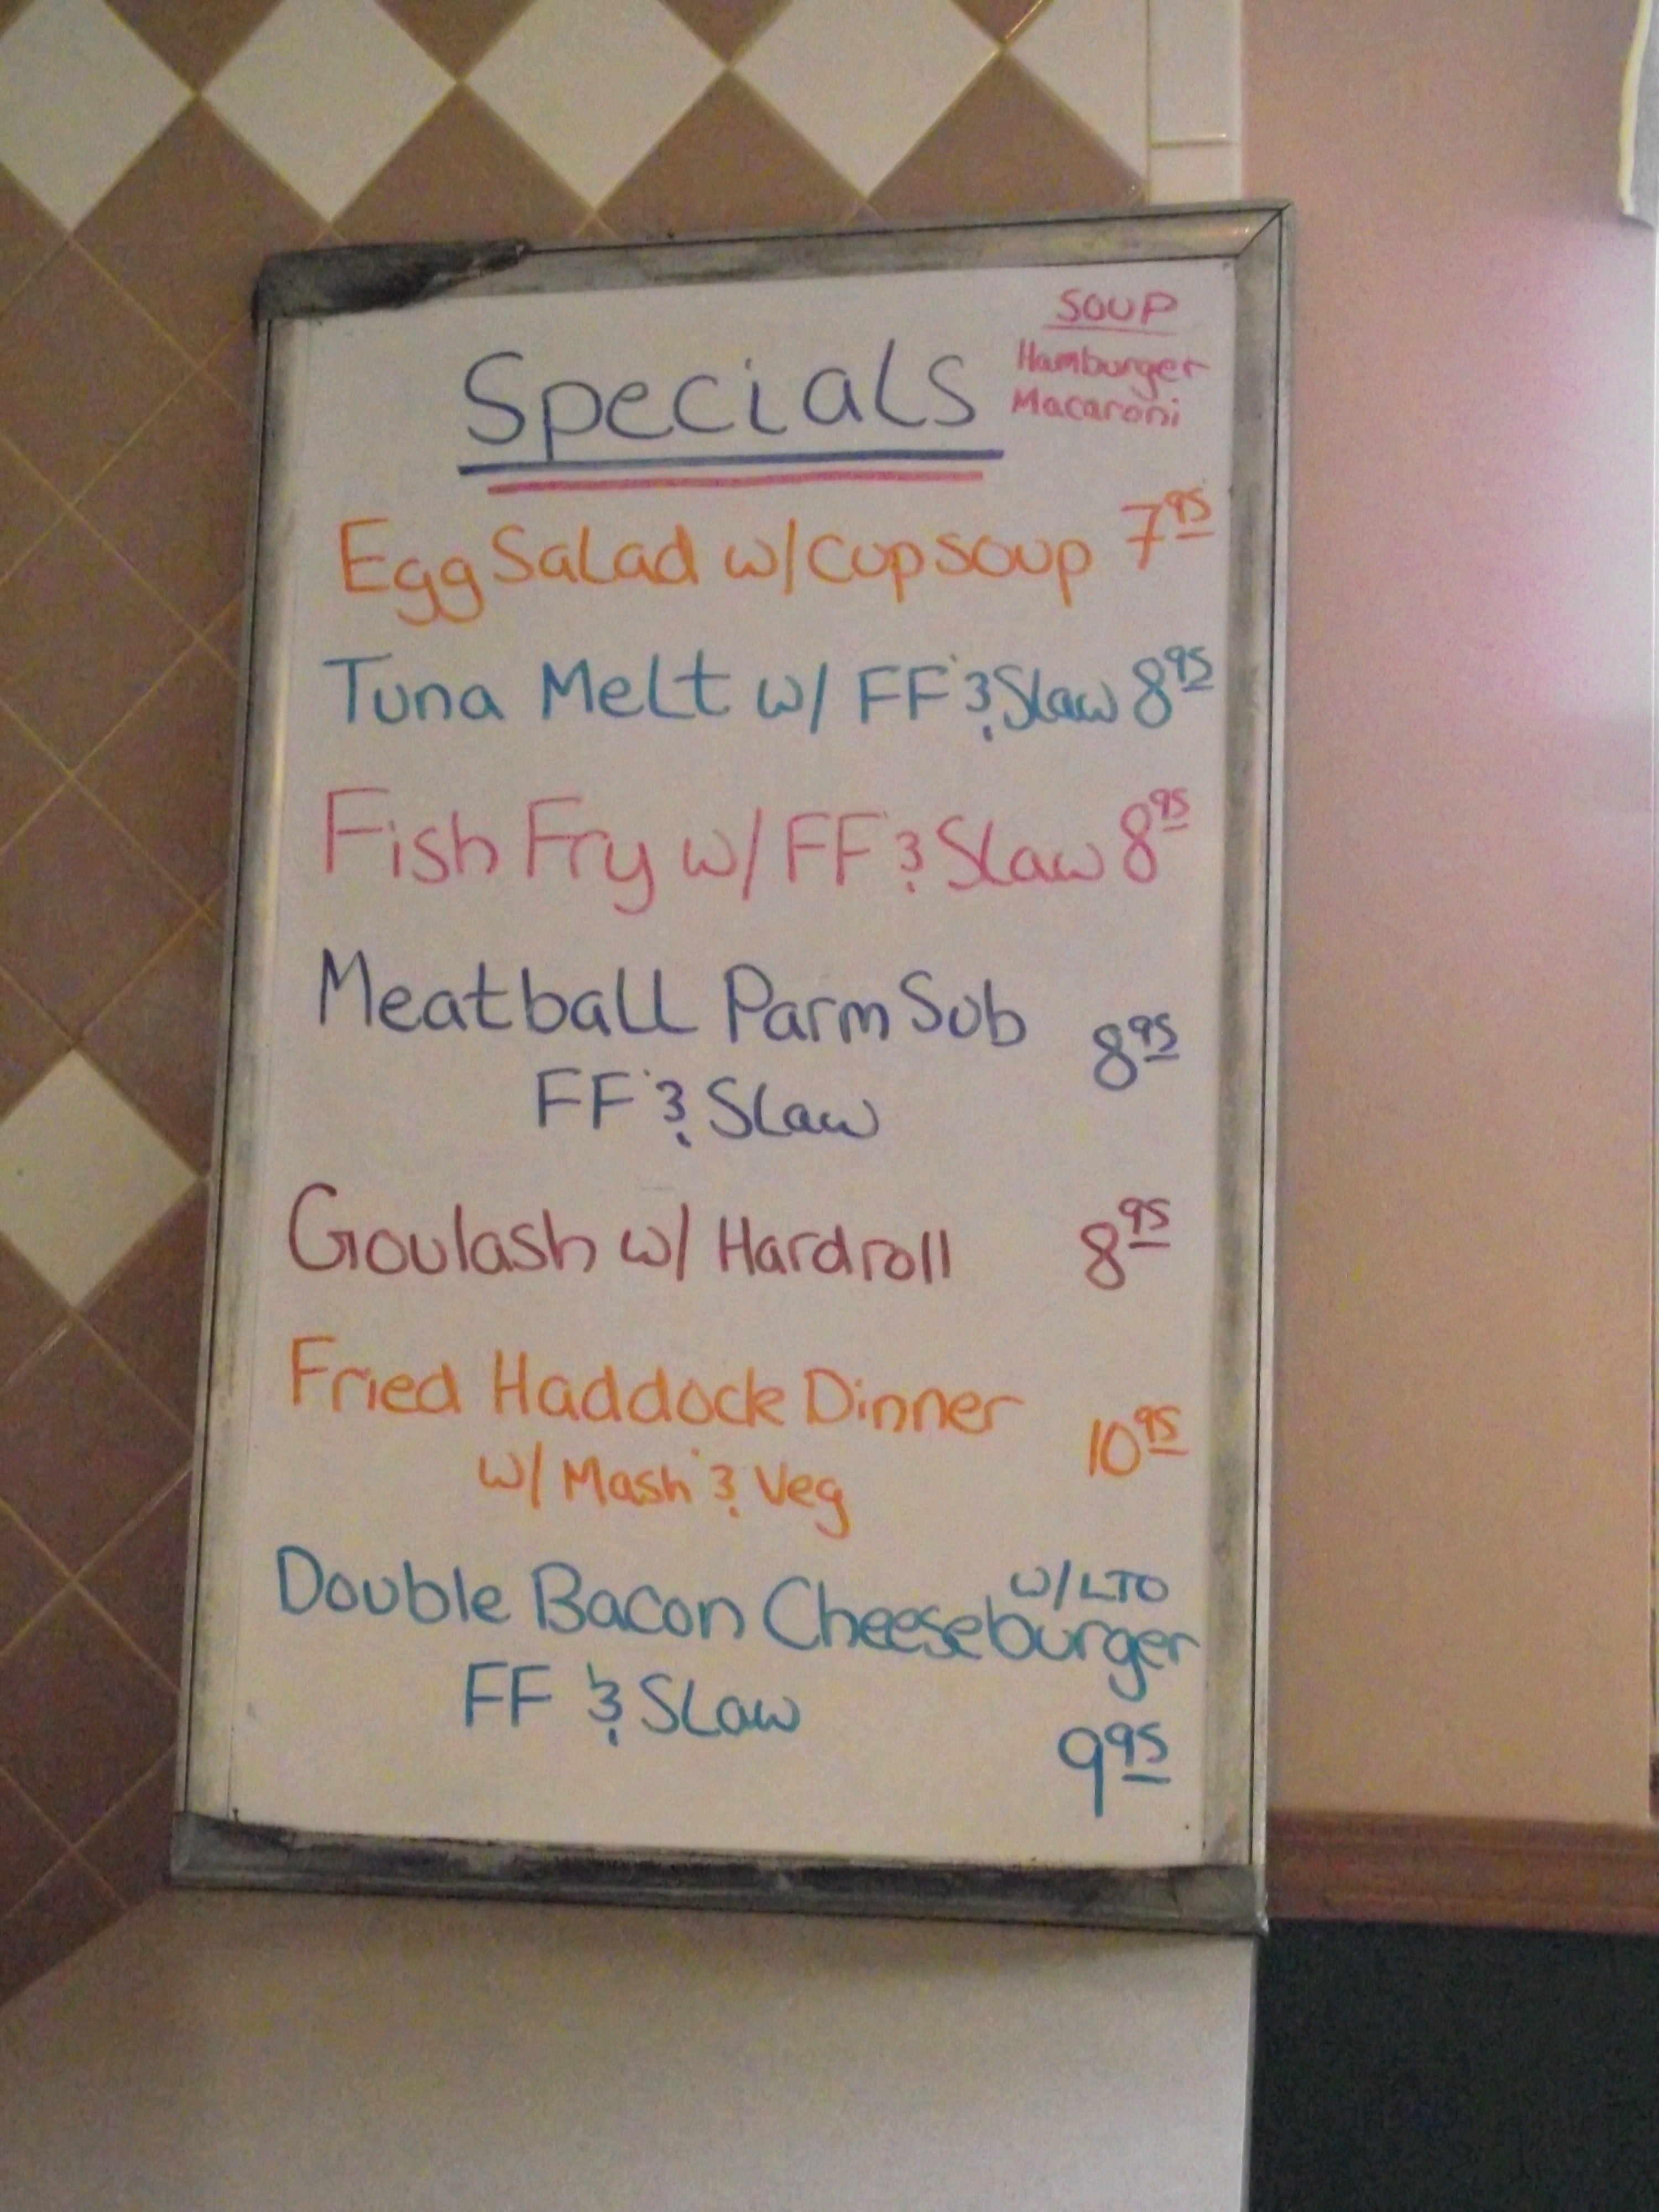 SOUP
Hamburger
Macaroni
Specials
Egg Salad w/cup soup 7 95
Tuna Melt w/ FF & Slaw 8 95
Fish Fry w/ FF & Slaw 8 95
Meatball Parm Sub 8 95
FF & Slaw
Goulash w/ Hardroll 8 95
Fried Haddock Dinner 10 95
w/ Mash & Veg
Double Bacon Cheeseburger w/LTO
FF & Slaw
9 95